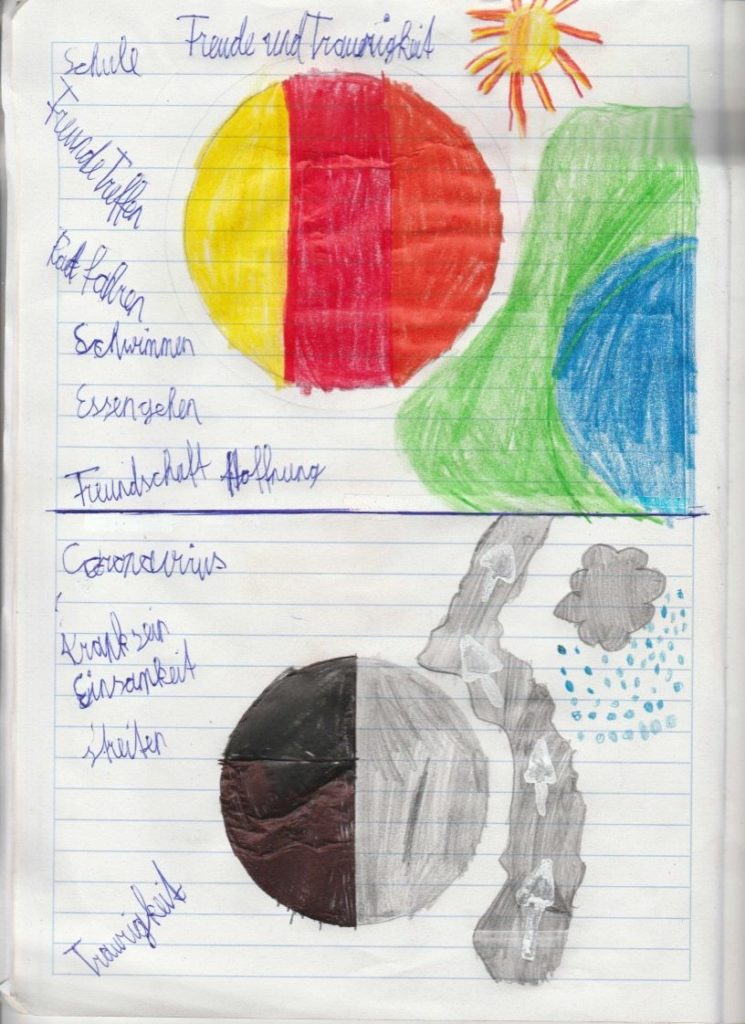 Freude und Traurigkeit
Schule
Freunde Treffen
Rad fahren
Schwimmen
Essengehen
Freundschaft Hoffnung
Coronavirus
Kranksein
Einsamkeit
streiten
Traurigkeit